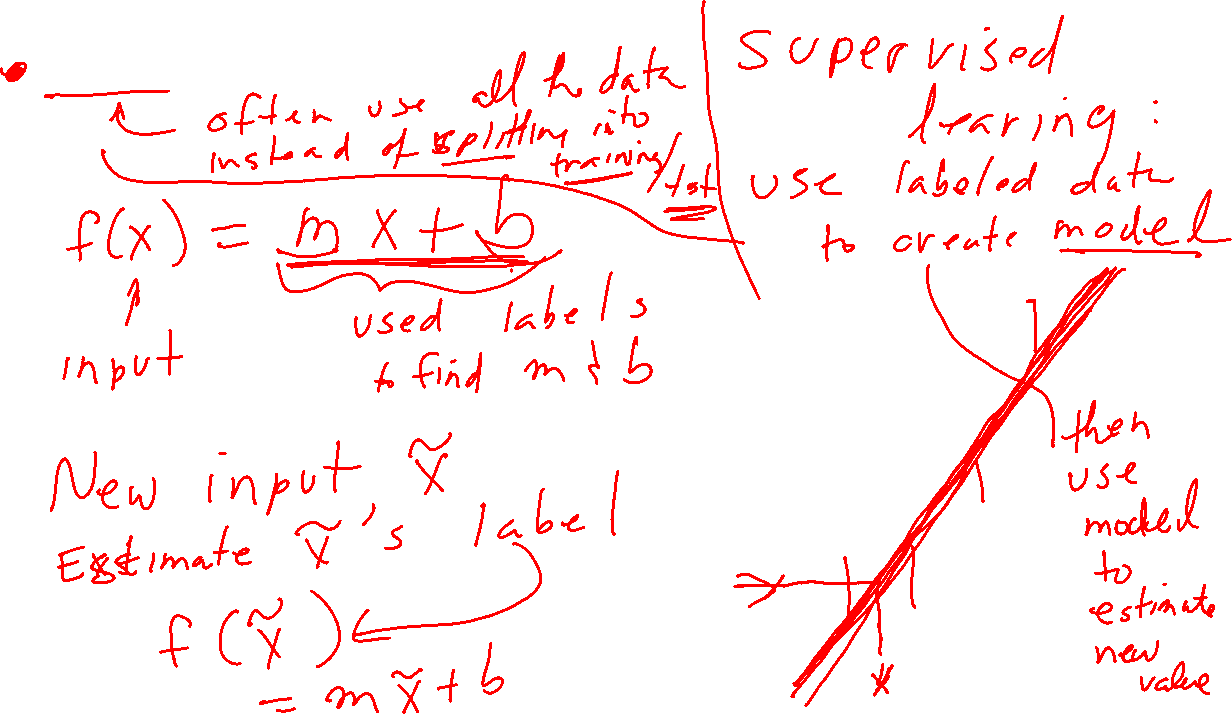 often use all the data
instead of splitting into
training/test
f(x) = mx + b
input
used labels
to find m & b
New input, x̃
Estimate x̃'s label
f(x̃)
= mx̃ + b
Supervised
learing:
use labeled data
to create model
then
use
model
to
estimate
new
value